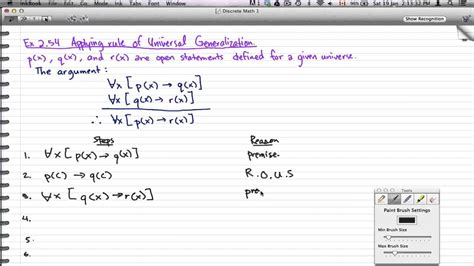 InkBook File Edit
Sat 19 Jan 2:13:32 PM
Discrete Math 1
Show Recognition
Ex 2.54 Applying rule of Universal Generalization.
p(x), q(x), and r(x) are open statements defined for a given universe.
The argument:
∀x [p(x) → q(x)]
∀x [q(x) → r(x)]
∴ ∀x [p(x) → r(x)]
Steps Reason
1. ∀x [p(x) → q(x)] premise.
2. p(c) → q(c) R.O.U.S
3. ∀x [q(x) → r(x)] pre
4.
5.
6.
Tools
Paint Brush Settings
Min Brush Size
Max Brush Size